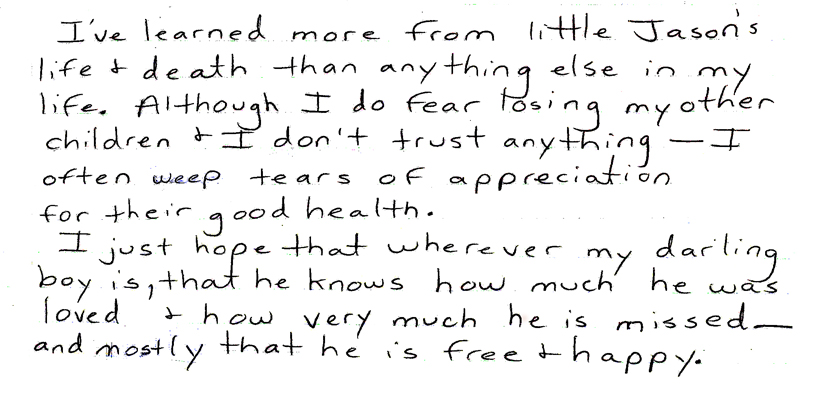 I've learned more from little Jason's
life & death than anything else in my
life. Although I do fear losing my other
children & I don't trust anything — I
often weep tears of appreciation
for their good health.
I just hope that wherever my darling
boy is, that he knows how much he was
loved & how very much he is missed —
and mostly that he is free & happy.